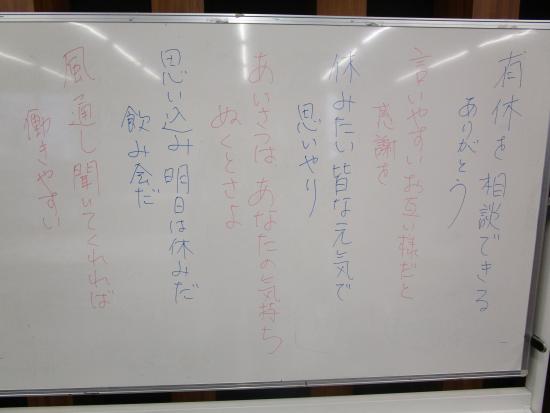 有休を相談できる
ありがとう
言いやすいお互い様だと
感謝を
休みたい皆な元気で
思いやり
あいさつはあなたの気持ち
ぬくとさよ
思い込み明日は休みだ
飲み会だ
風通し聞いてくれれば
働きやすい